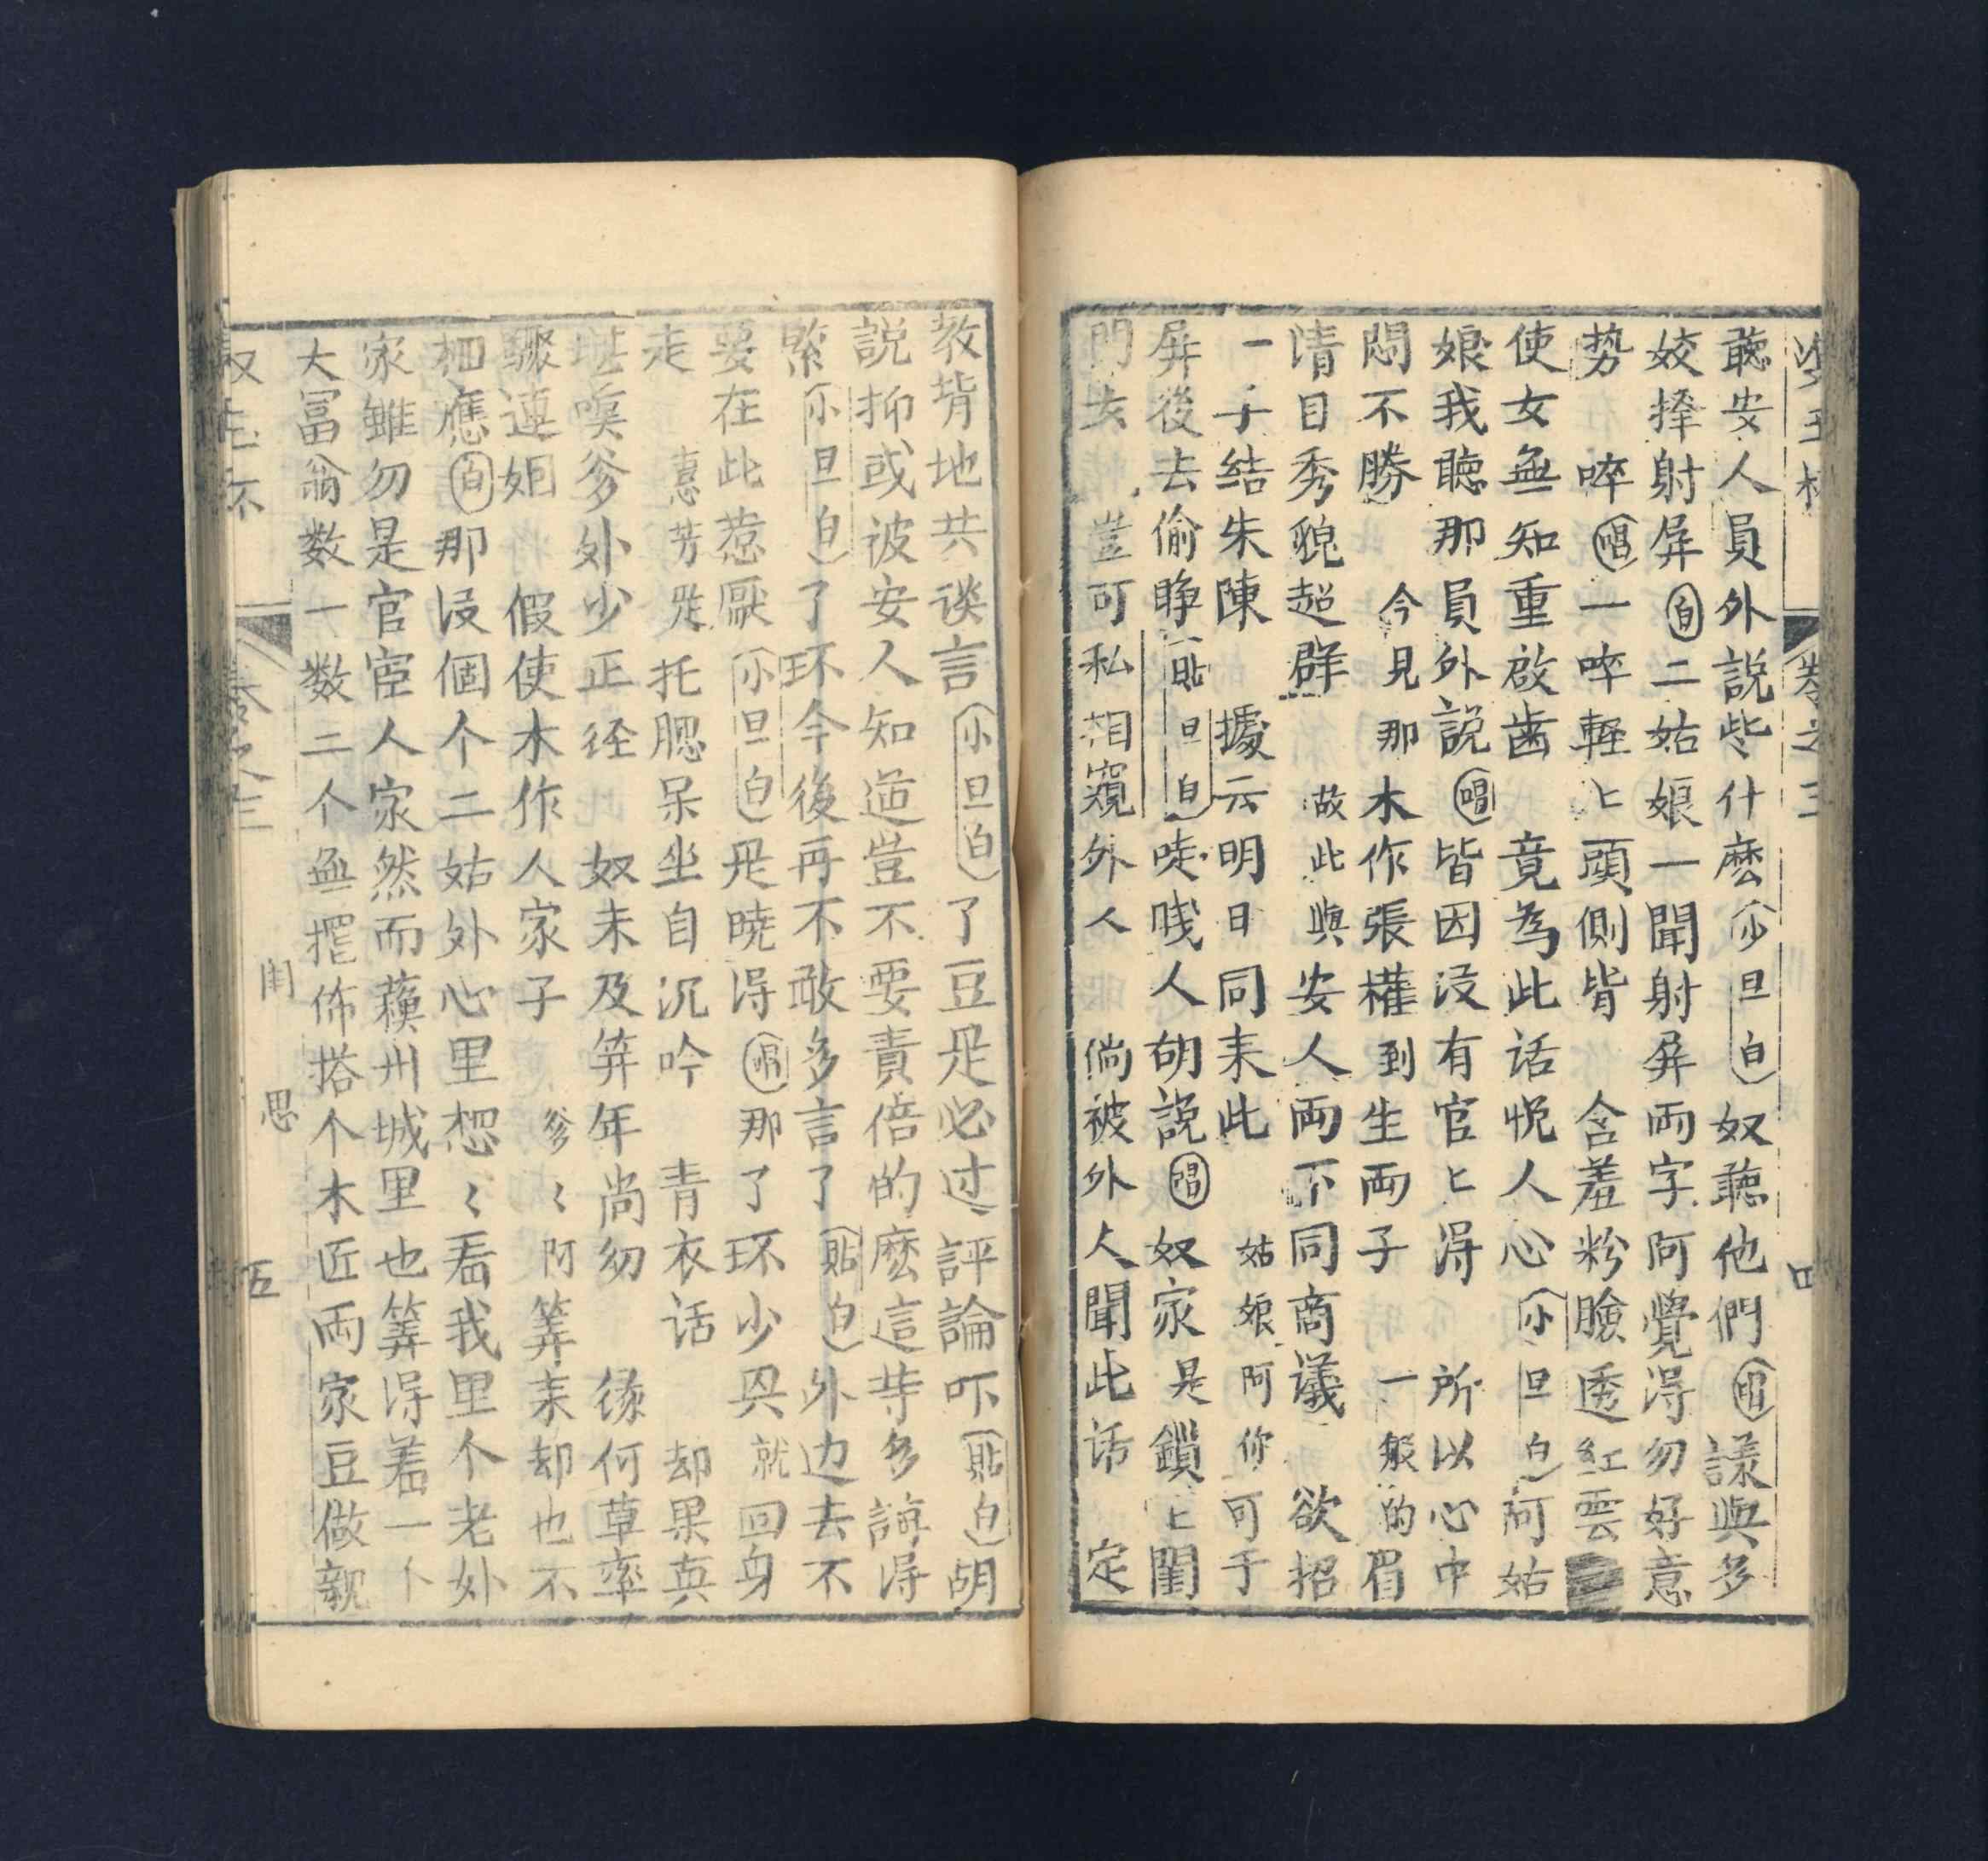 卷之三
四
聽安人員外說些什麽(小旦白)奴聽他們(唱)議與多
姣擇射屏(白)二姑娘一聞射屏両字阿覺淂勿好意
势啐(唱)一啐輕〻頭側皆含羞粉臉透紅雲
使女無知重啟齒竟為此话恱人心(小旦白)阿姑
娘我聽那員外說(唱)皆因沒有官〻淂所以心中
悶不勝今見那木作張權到生両子一般的眉
清目秀貌超群故此與安人両下同商議欲招
一子結朱陳據云明日同来此姑娘阿你可于
屏後去偷睁(貼旦白)唗賤人胡說(唱)奴家是鎖〻閨
門女豈可私相窺外人倘被外人聞此话定
教背地共谈言(小旦白)了豆是必过評論吓(貼白)胡
說抑或被安人知道豈不要責倍的麽這等多諄淂
緊(小旦白)了环今後再不敢多言了(貼白)外边去不
要在此惹厭(小旦白)是曉淂(唱)那了环少興就回身
走惪芳是托腮呆坐自沉吟青衣话却果真
堪嘆爹外少正径奴未及笄年尚勿缘何草率
驟連姻假使木作人家子爹〻阿筭来却也不
相應(白)那沒個个二姑外心里想〻看我里个老外
家雖勿是官宦人家然而蘓州城里也筭淂着一个
大冨翁数一数二个無擺佈搭个木匠両家豆做親
卷之三
閨思
五